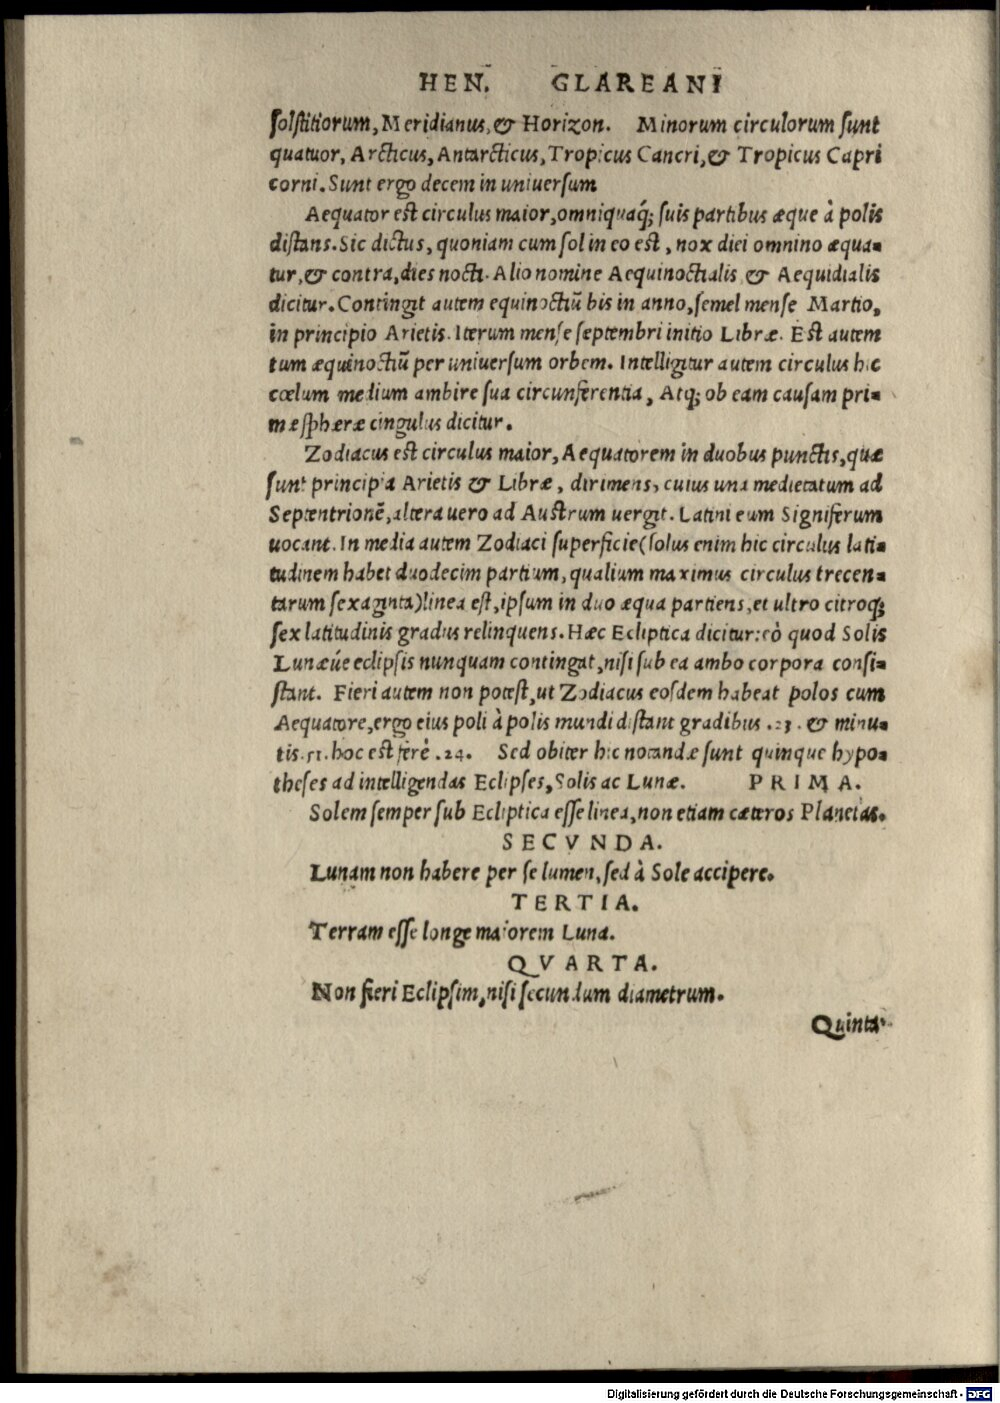 HEN. GLAREANI
solstitiorum, Meridianus, & Horizon. Minorum circulorum sunt
quatuor, Arcticus, Antarcticus, Tropicus Cancri, & Tropicus Capri
corni. Sunt ergo decem in uniuersum
Aequator est circulus maior, omniquaq́; suis partibus æque à polis
distans. Sic dictus, quoniam cum sol in eo est, nox diei omnino æqua-
tur, & contra, dies nocti. Alio nomine Aequinoctialis & Aequidialis
dicitur. Contingit autem equinoctiũ bis in anno, semel mense Martio,
in principio Arietis. Iterum mense septembri initio Libræ. Est autem
tum æquinoctiũ per uniuersum orbem. Intelligitur autem circulus hic
cœlum medium ambire sua circunferentia, Atq; ob eam causam pri-
mæ sphæræ cingulus dicitur.
Zodiacus est circulus maior, Aequatorem in duobus punctis, quæ
sunt principia Arietis & Libræ, dirimens, cuius una medietatum ad
Septentrionẽ, altera uero ad Austrum uergit. Latini eum Signiferum
uocant. In media autem Zodiaci superficie (solus enim hic circulus lati-
tudinem habet duodecim partium, qualium maximus circulus trecen-
tarum sexaginta) linea est, ipsum in duo æqua partiens, et ultro citroq;
sex latitudinis gradus relinquens. Hæc Ecliptica dicitur: eò quod Solis
Lunæúe eclipsis nunquam contingat, nisi sub ea ambo corpora consi-
stant. Fieri autem non potest, ut Zodiacus eosdem habeat polos cum
Aequatore, ergo eius poli à polis mundi distant gradibus .23. & minu-
tis .51. hoc est ferè .24. Sed obiter hic notandæ sunt quinque hypo-
theses ad intelligendas Eclipses, Solis ac Lunæ. PRIMA.
Solem semper sub Ecliptica esse linea, non etiam cæteros Planetas.
SECVNDA.
Lunam non habere per se lumen, sed à Sole accipere.
TERTIA.
Terram esse longe maiorem Luna.
QVARTA.
Non fieri Eclipsim, nisi secundum diametrum.
Quinta
Digitalisierung gefördert durch die Deutsche Forschungsgemeinschaft - DFG